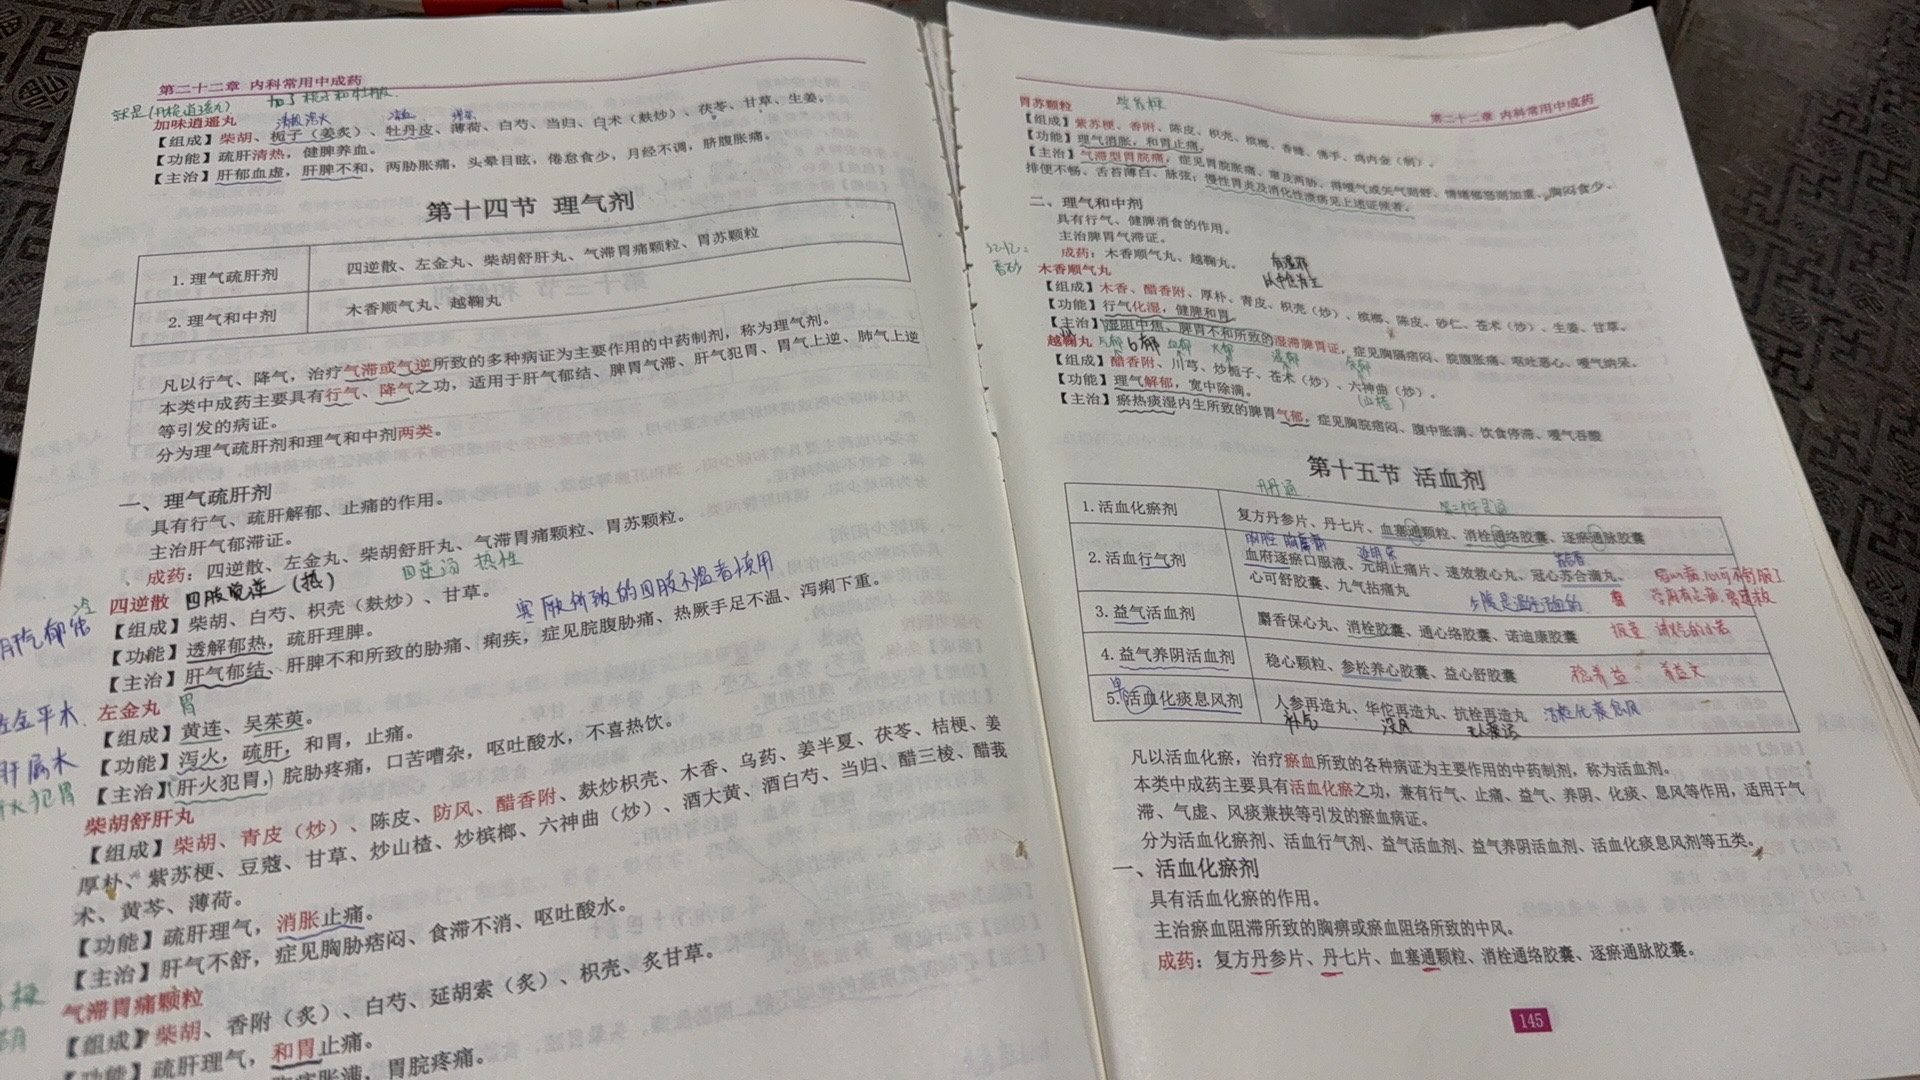 第二十二章 内科常用中成药
加味逍遥丸
【组成】柴胡、栀子（姜炙）、牡丹皮、薄荷、白芍、当归、白术（麸炒）、茯苓、甘草、生姜。
【功能】疏肝清热，健脾养血。
【主治】肝郁血虚，肝脾不和，两胁胀痛，头晕目眩，倦怠食少，月经不调，脐腹胀痛。
第十四节 理气剂
1.理气疏肝剂 四逆散、左金丸、柴胡舒肝丸、气滞胃痛颗粒、胃苏颗粒
2.理气和中剂 木香顺气丸、越鞠丸
凡以行气、降气，治疗气滞或气逆所致的多种病证为主要作用的中药制剂，称为理气剂。
本类中成药主要具有行气、降气之功，适用于肝气郁结、脾胃气滞、肝气犯胃、胃气上逆、肺气上逆
等引发的病证。
分为理气疏肝剂和理气和中剂两类。
一、理气疏肝剂
具有行气、疏肝解郁、止痛的作用。
主治肝气郁滞证。
成药：四逆散、左金丸、柴胡舒肝丸、气滞胃痛颗粒、胃苏颗粒。
四逆汤 热性
四逆散 四肢厥逆（热）
寒厥所致的四肢不温者慎用
【组成】柴胡、白芍、枳壳（麸炒）、甘草。
【功能】透解郁热，疏肝理脾。
【主治】肝气郁结、肝脾不和所致的胁痛、痢疾，症见脘腹胁痛、热厥手足不温、泻痢下重。
左金丸 胃
【组成】黄连、吴茱萸。
【功能】泻火，疏肝，和胃，止痛。
肝属木
【主治】肝火犯胃，脘胁疼痛，口苦嘈杂，呕吐酸水，不喜热饮。
火犯胃
柴胡舒肝丸
【组成】柴胡、青皮（炒）、陈皮、防风、醋香附、麸炒枳壳、木香、乌药、姜半夏、茯苓、桔梗、姜
厚朴、紫苏梗、豆蔻、甘草、炒山楂、炒槟榔、六神曲（炒）、酒大黄、酒白芍、当归、醋三棱、醋莪
术、黄芩、薄荷。
【功能】疏肝理气，消胀止痛。
【主治】肝气不舒，症见胸胁痞闷、食滞不消、呕吐酸水。
气滞胃痛颗粒
【组成】柴胡、香附（炙）、白芍、延胡索（炙）、枳壳、炙甘草。
【功能】疏肝理气，和胃止痛。
胀满，胃脘疼痛。
第二十二章 内科常用中成药
胃苏颗粒
【组成】紫苏梗、香附、陈皮、枳壳、槟榔、香橼、佛手、鸡内金（制）。
【功能】理气消胀，和胃止痛。
【主治】气滞型胃脘痛，症见胃脘胀痛、窜及两胁、得嗳气或矢气则舒、情绪郁怒则加重、胸闷食少、
排便不畅、舌苔薄白、脉弦；慢性胃炎及消化性溃疡见上述证候者。
二、理气和中剂
具有行气、健脾消食的作用。
主治脾胃气滞证。
成药：木香顺气丸、越鞠丸。
木香顺气丸
【组成】木香、醋香附、厚朴、青皮、枳壳（炒）、槟榔、陈皮、砂仁、苍术（炒）、生姜、甘草。
【功能】行气化湿，健脾和胃。
【主治】湿阻中焦、脾胃不和所致的湿滞脾胃证，症见胸膈痞闷、脘腹胀痛、呕吐恶心、嗳气纳呆。
越鞠丸 6郁 血郁 火郁 湿郁 食郁
【组成】醋香附、川芎、炒栀子、苍术（炒）、六神曲（炒）。
【功能】理气解郁，宽中除满。
【主治】瘀热痰湿内生所致的脾胃气郁，症见胸脘痞闷、腹中胀满、饮食停滞、嗳气吞酸
第十五节 活血剂
丹丹通
1.活血化瘀剂 复方丹参片、丹七片、血塞通颗粒、消栓通络胶囊、逐瘀通脉胶囊
2.活血行气剂 血府逐瘀口服液、元胡止痛片、速效救心丸、冠心苏合滴丸、
心可舒胶囊、九气拈痛丸
3.益气活血剂 麝香保心丸、消栓胶囊、通心络胶囊、诺迪康胶囊
4.益气养阴活血剂 稳心颗粒、参松养心胶囊、益心舒胶囊
5.活血化痰息风剂 人参再造丸、华佗再造丸、抗栓再造丸 活血化痰息风
补气
凡以活血化瘀，治疗瘀血所致的各种病证为主要作用的中药制剂，称为活血剂。
本类中成药主要具有活血化瘀之功，兼有行气、止痛、益气、养阴、化痰、息风等作用，适用于气
滞、气虚、风痰兼挟等引发的瘀血病证。
分为活血化瘀剂、活血行气剂、益气活血剂、益气养阴活血剂、活血化痰息风剂等五类。
一、活血化瘀剂
具有活血化瘀的作用。
主治瘀血阻滞所致的胸痹或瘀血阻络所致的中风。
成药：复方丹参片、丹七片、血塞通颗粒、消栓通络胶囊、逐瘀通脉胶囊。
145